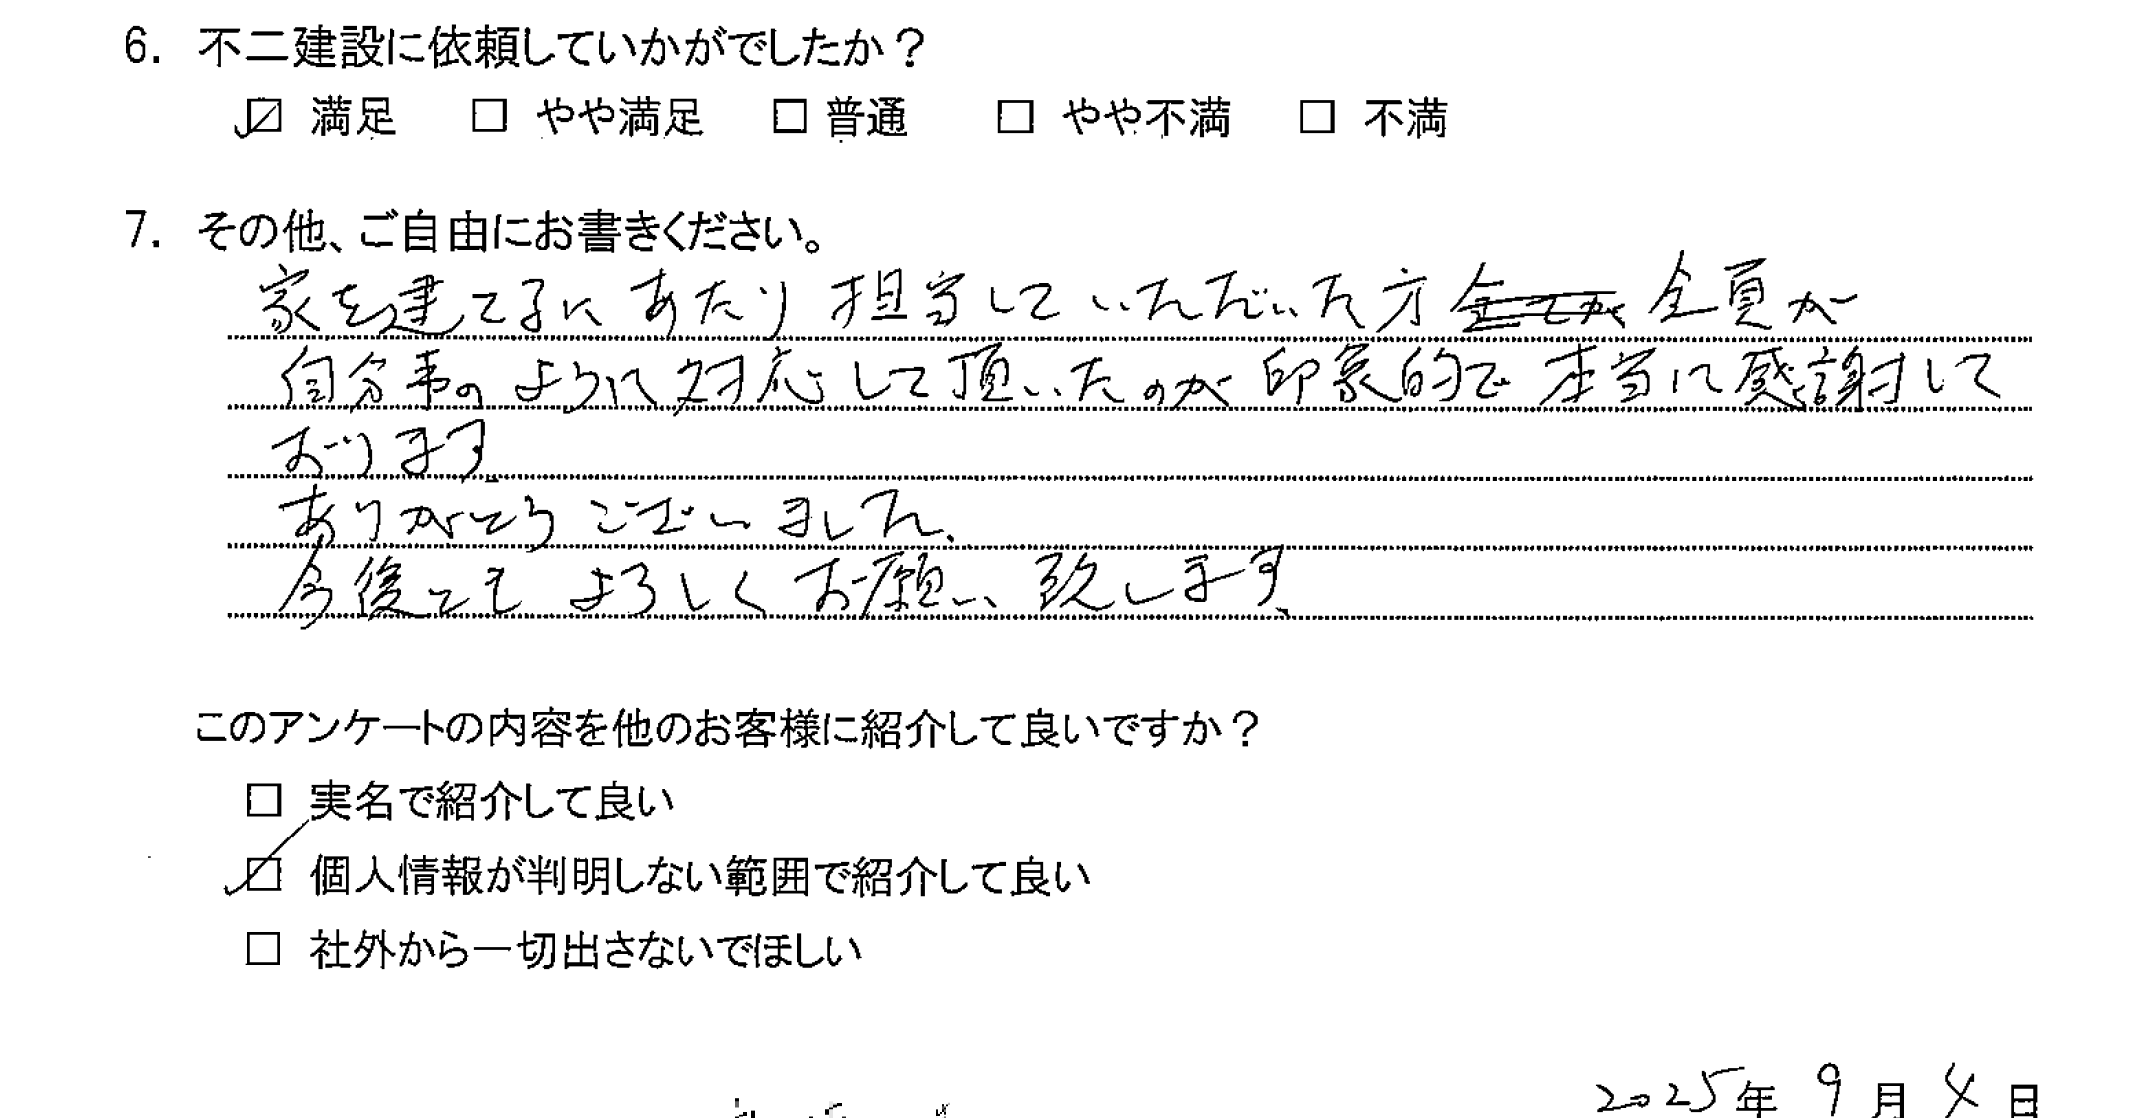 6. 不二建設に依頼していかがでしたか？
☑ 満足 □ やや満足 □ 普通 □ やや不満 □ 不満
7. その他、ご自由にお書きください。
家を建てるにあたり担当していただいた方 全てが 全員が
自分事のように対応して頂いたのが印象的で本当に感謝して
おります。
ありがとうございました。
今後ともよろしくお願い致します。
このアンケートの内容を他のお客様に紹介して良いですか？
□ 実名で紹介して良い
☑ 個人情報が判明しない範囲で紹介して良い
□ 社外から一切出さないでほしい
2025年 9月 4日